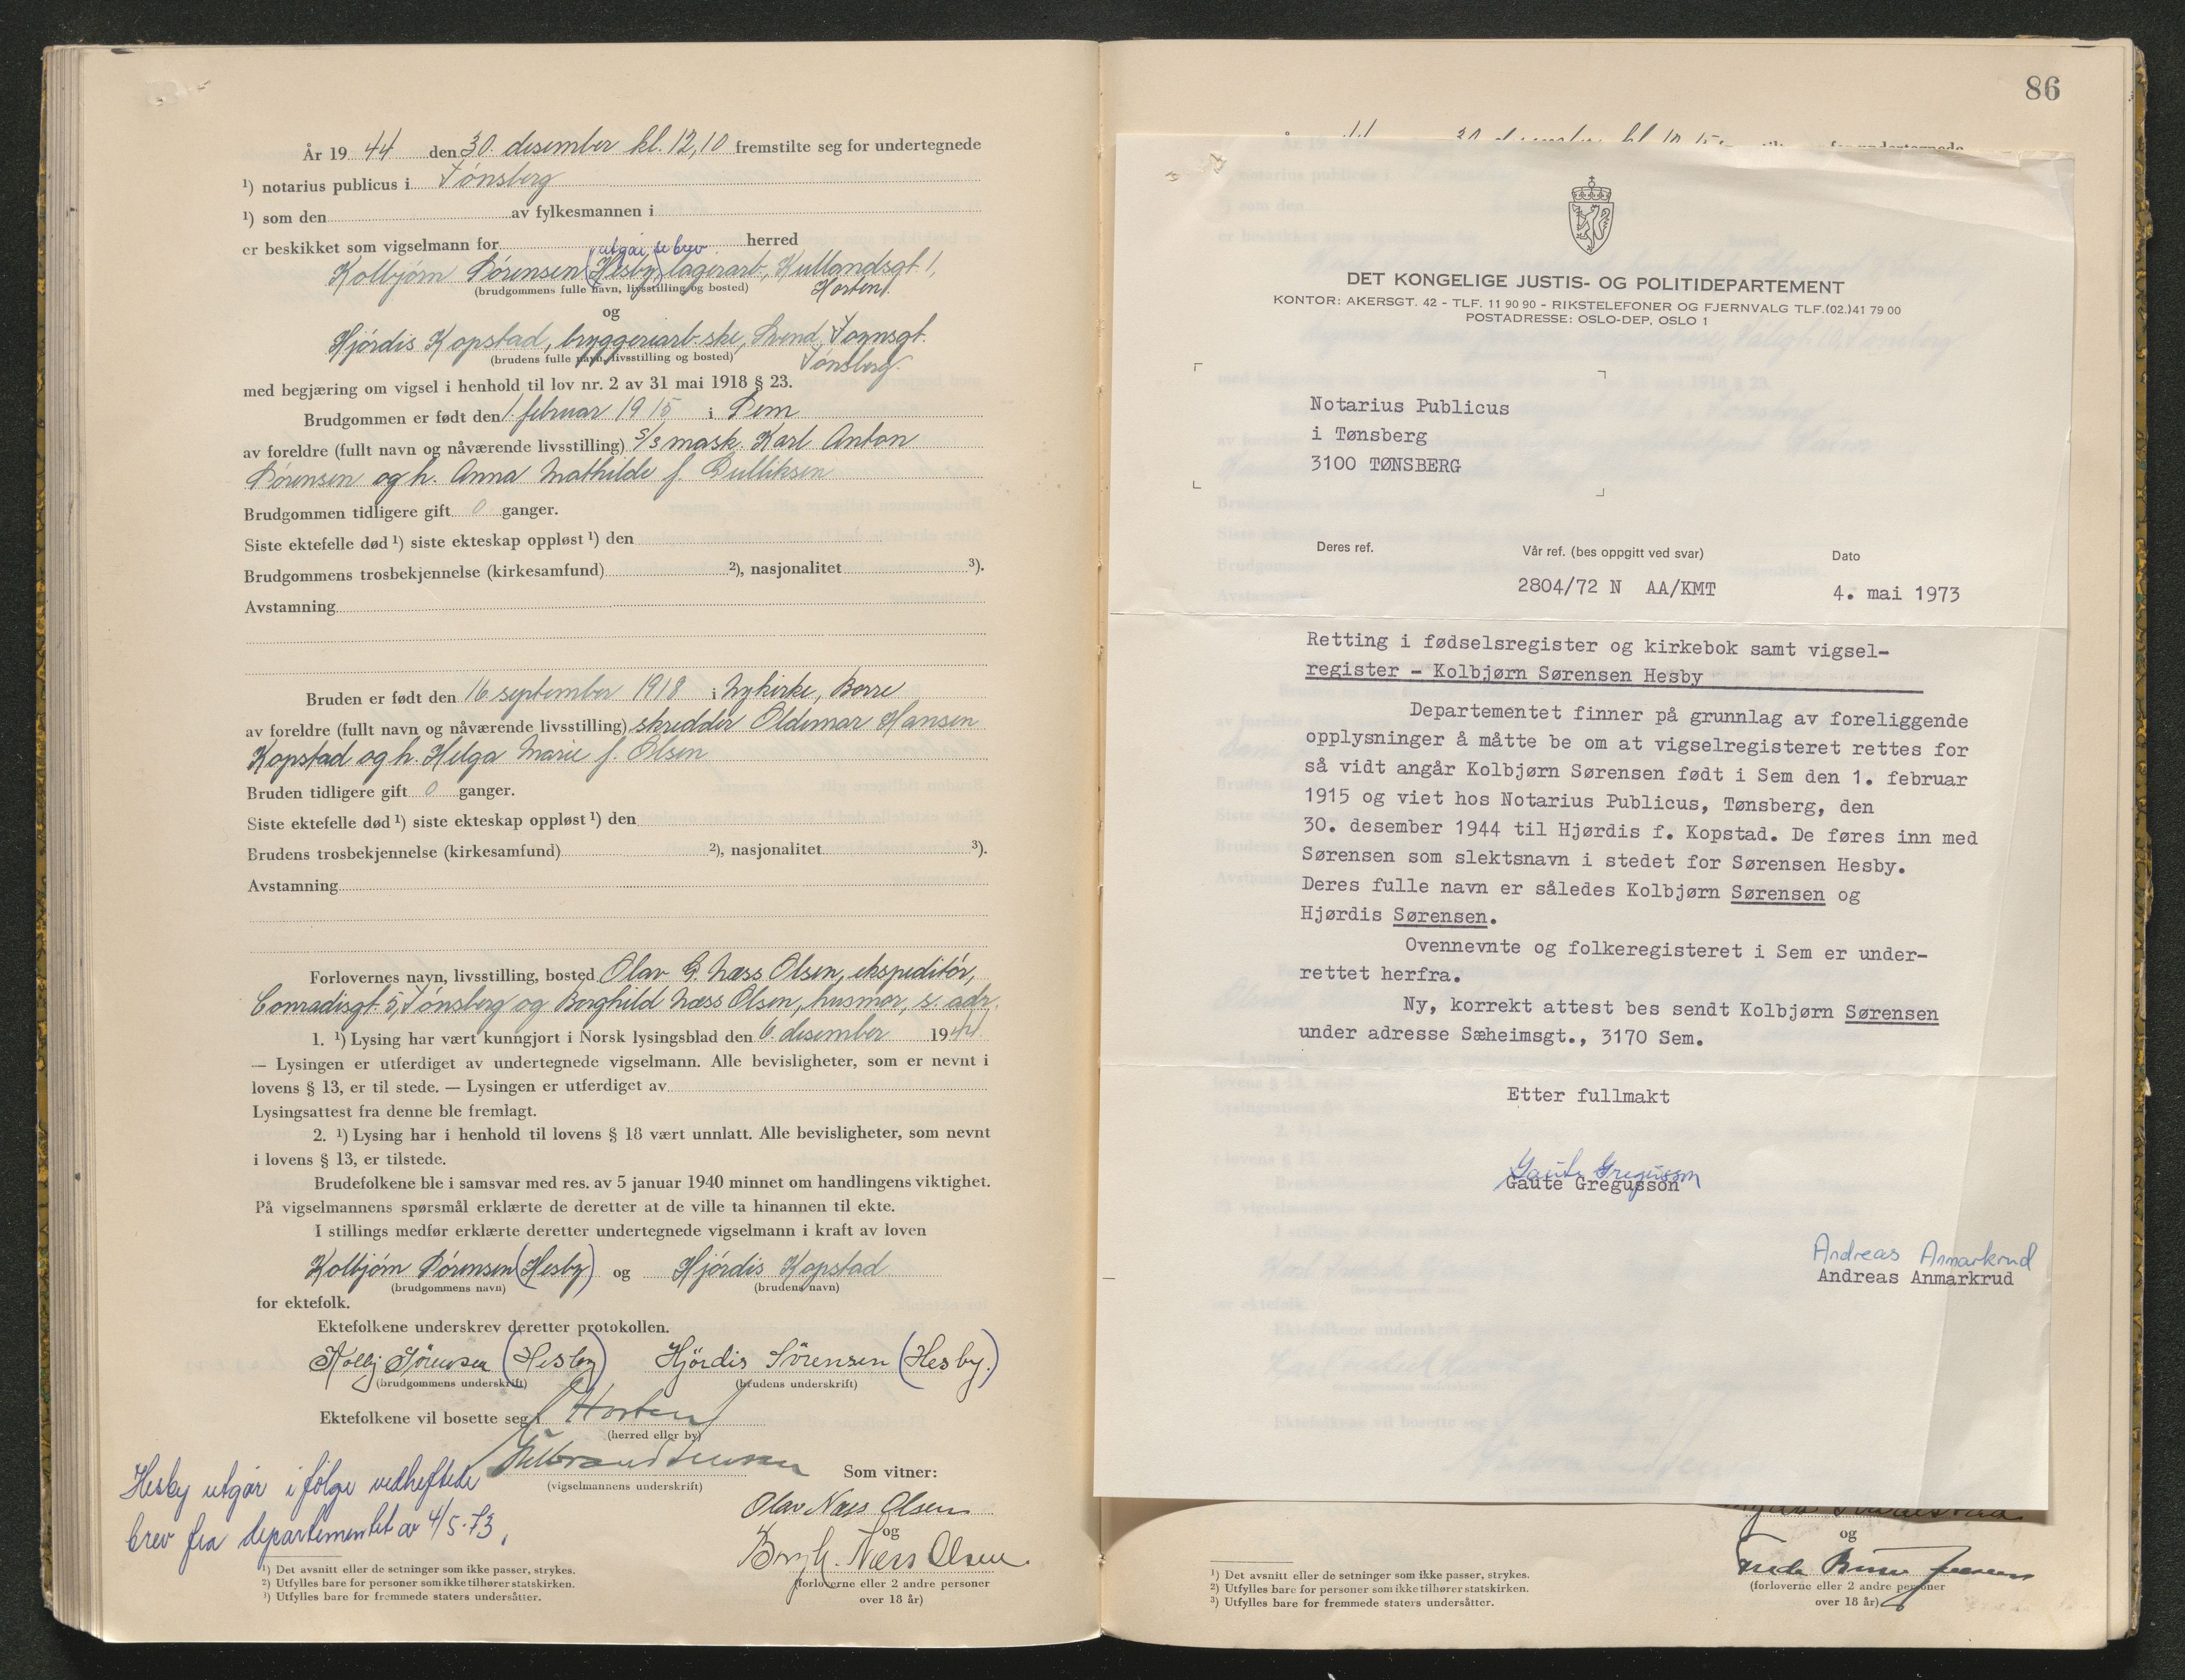 År 19 44 den 30. desember kl. 12,10 fremstilte seg for undertegnede
¹) notarius publicus i Tønsberg
¹) som den av fylkesmannen i
er beskikket som vigselmann for herred
utgår, se brev
Kolbjørn Sørensen (Hesby) lagerarb., Kullandsgt 1,
(brudgommens fulle navn, livsstilling og bosted)
Horten.
og
Hjørdis Kopstad, bryggeriarb-ske, Svend Foynsgt.
(brudens fulle navn, livsstilling og bosted)
Tønsberg.
med begjæring om vigsel i henhold til lov nr. 2 av 31 mai 1918 § 23.
Brudgommen er født den 1. februar 1915 i Sem
av foreldre (fullt navn og nåværende livsstilling) s/s mask. Karl Anton
Sørensen og h. Anna Mathilde f. Sulliksen
Brudgommen tidligere gift 0 ganger.
Siste ektefelle død ¹) siste ekteskap oppløst ¹) den
Brudgommens trosbekjennelse (kirkesamfund) ²), nasjonalitet ³).
Avstamning
Bruden er født den 16. september 1918 i Nykirke, Borre
av foreldre (fullt navn og nåværende livsstilling) skredder Oldemar Hansen
Kopstad og h. Helga Marie f. Olsen
Bruden tidligere gift 0 ganger.
Siste ektefelle død ¹) siste ekteskap oppløst ¹) den
Brudens trosbekjennelse (kirkesamfund) ²), nasjonalitet ³).
Avstamning
Forlovernes navn, livsstilling, bosted Olav G. Næss Olsen, ekspeditør,
Conradisgt. 5, Tønsberg og Borghild Næss Olsen, husmor, s. adr.
1. ¹) Lysing har vært kunngjort i Norsk lysingsblad den 6. desember 1944
— Lysingen er utferdiget av undertegnede vigselmann. Alle bevisligheter, som er nevnt i
lovens § 13, er til stede. — Lysingen er utferdiget av
Lysingsattest fra denne ble fremlagt.
2. ¹) Lysing har i henhold til lovens § 18 vært unnlatt. Alle bevisligheter, som nevnt
i lovens § 13, er tilstede.
Brudefolkene ble i samsvar med res. av 5 januar 1940 minnet om handlingens viktighet.
På vigselmannens spørsmål erklærte de deretter at de ville ta hinannen til ekte.
I stillings medfør erklærte deretter undertegnede vigselmann i kraft av loven
Kolbjørn Sørensen (Hesby) og Hjørdis Kopstad
(brudgommens navn) (brudens navn)
for ektefolk.
Ektefolkene underskrev deretter protokollen.
Kolbj Sørensen (Hesby) Hjördis Sörensen (Hesby.)
(brudgommens underskrift) (brudens underskrift)
Ektefolkene vil bosette seg i Horten
(herred eller by)
(vigselmannens underskrift)
Som vitner:
Hesby utgår i følge vedheftede
brev fra departementet av 4/5-73.
Olav Næss Olsen
og
Borgh. Næss Olsen
(forloverne eller 2 andre personer
over 18 år)
¹) Det avsnitt eller de setninger som ikke passer, strykes.
²) Utfylles bare for personer som ikke tilhører statskirken.
³) Utfylles bare for fremmede staters undersåtter.
86
DET KONGELIGE JUSTIS- OG POLITIDEPARTEMENT
KONTOR: AKERSGT. 42 - TLF. 11 90 90 - RIKSTELEFONER OG FJERNVALG TLF.(02.)41 79 00
POSTADRESSE: OSLO-DEP, OSLO 1
Notarius Publicus
i Tønsberg
3100 TØNSBERG
Deres ref. Vår ref. (bes oppgitt ved svar) Dato
2804/72 N AA/KMT 4. mai 1973
Retting i fødselsregister og kirkebok samt vigsel-
register - Kolbjørn Sørensen Hesby
Departementet finner på grunnlag av foreliggende
opplysninger å måtte be om at vigselregisteret rettes for
så vidt angår Kolbjørn Sørensen født i Sem den 1. februar
1915 og viet hos Notarius Publicus, Tønsberg, den
30. desember 1944 til Hjørdis f. Kopstad. De føres inn med
Sørensen som slektsnavn i stedet for Sørensen Hesby.
Deres fulle navn er således Kolbjørn Sørensen og
Hjørdis Sørensen.
Ovennevnte og folkeregisteret i Sem er under-
rettet herfra.
Ny, korrekt attest bes sendt Kolbjørn Sørensen
under adresse Sæheimsgt., 3170 Sem.
Etter fullmakt
Gaute Gregusson
Gaute Gregusson
Andreas Anmarkrud
Andreas Anmarkrud
og
(forloverne eller 2 andre personer
over 18 år)
¹) Det avsnitt eller de setninger som ikke passer, strykes.
²) Utfylles bare for personer som ikke tilhører statskirken.
³) Utfylles bare for fremmede staters undersåtter.